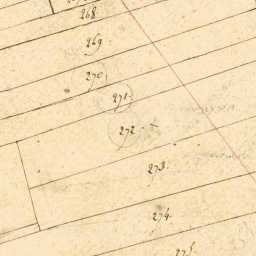 268
269
270
271
272
273.
274.
275.